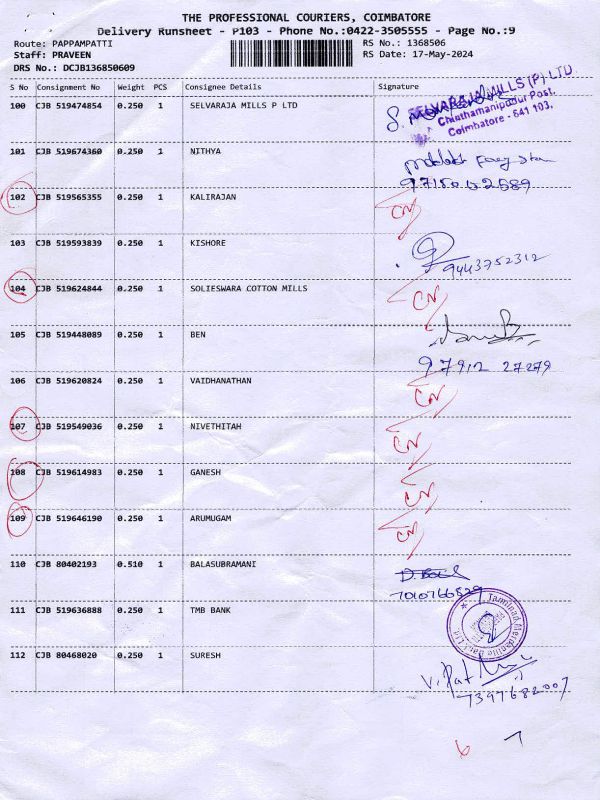 THE PROFESSIONAL COURIERS, COIMBATORE
Delivery Runsheet - P103 - Phone No.:0422-3505555 - Page No.:9
Route: PAPPAMPATTI RS No.: 1368506
Staff: PRAVEEN RS Date: 17-May-2024
DRS No.: DCJB136850609
S No Consignment No Weight PCS Consignee Details Signature
100 CJB 519474854 0.250 1 SELVARAJA MILLS P LTD
SELVARAJA MILLS (P) LTD
Chinthamanipudur Post,
Coimbatore - 641 103.
101 CJB 519674360 0.250 1 NITHYA
102 CJB 519565355 0.250 1 KALIRAJAN CN
103 CJB 519593839 0.250 1 KISHORE
9443752312
104 CJB 519624844 0.250 1 SOLIESWARA COTTON MILLS CN
105 CJB 519448089 0.250 1 BEN
97912 27279
106 CJB 519620824 0.250 1 VAIDHANATHAN CN
107 CJB 519549036 0.250 1 NIVETHITAH CN
108 CJB 519614983 0.250 1 GANESH CN
109 CJB 519646190 0.250 1 ARUMUGAM CN
110 CJB 80402193 0.510 1 BALASUBRAMANI
7010766529
111 CJB 519636888 0.250 1 TMB BANK
Tamilnad Mercantile Bank Ltd
112 CJB 80468020 0.250 1 SURESH
7397682007
6 7